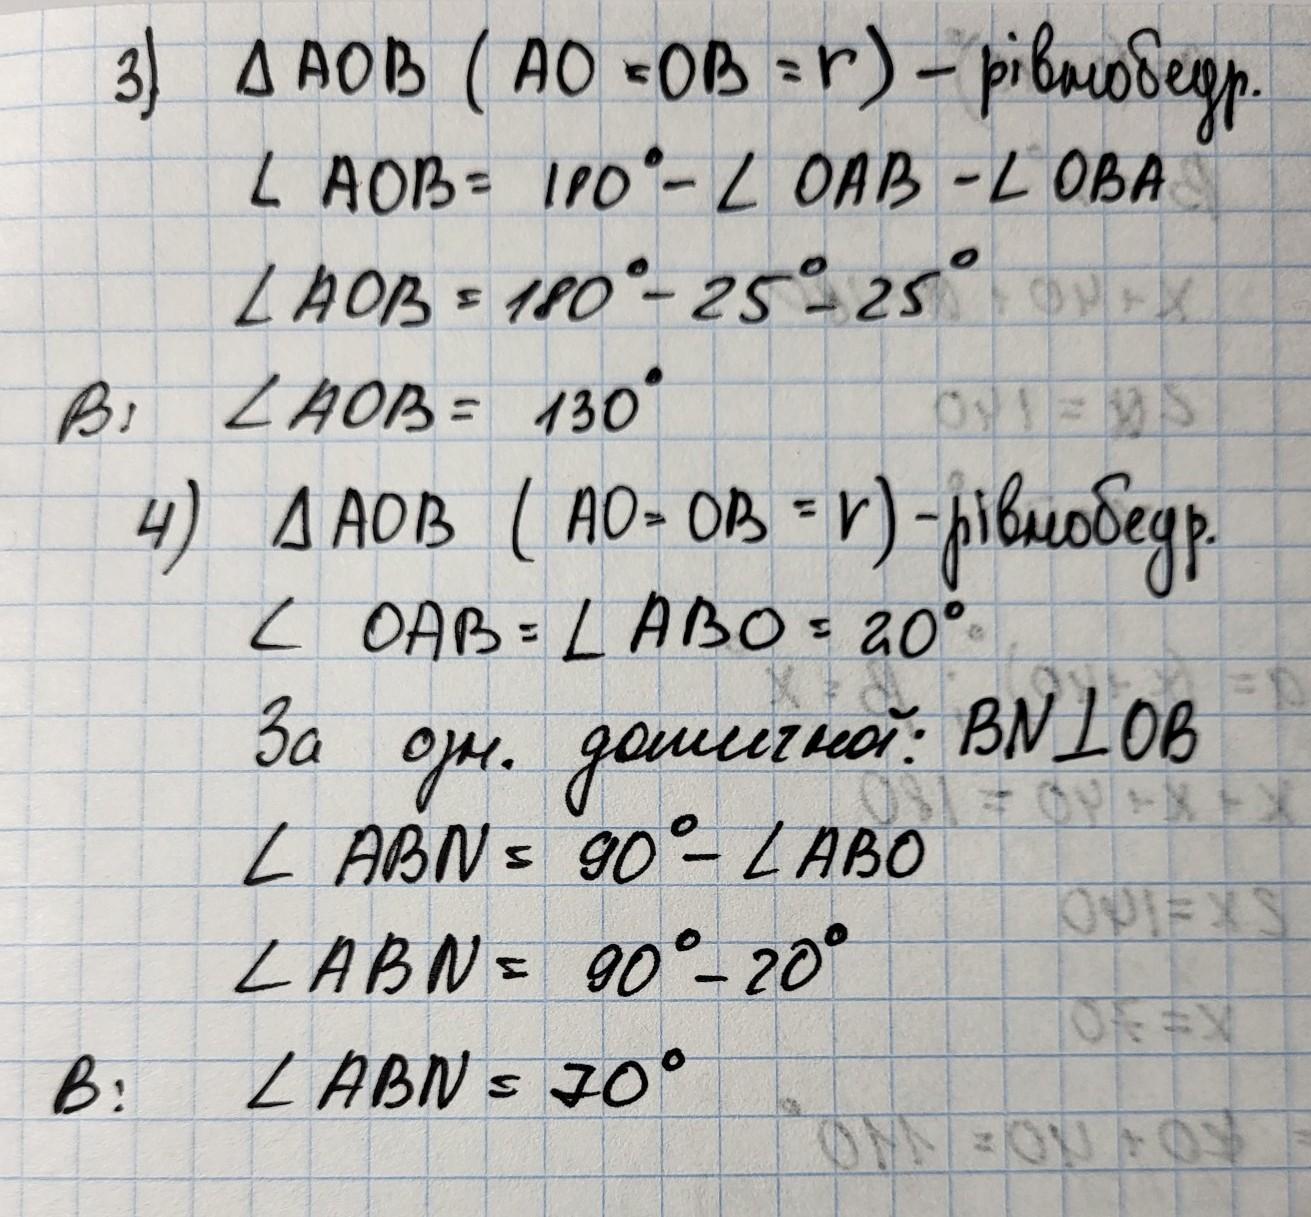 3) Δ AOB ( AO = OB = r ) - рівнобедр.
∠ AOB = 180° - ∠ OAB - ∠ OBA
∠ AOB = 180° - 25° - 25°
В: ∠ AOB = 130°
4) Δ AOB ( AO = OB = r ) - рівнобедр.
∠ OAB = ∠ ABO = 20°
За озн. дотичной: BN ⊥ OB
∠ ABN = 90° - ∠ ABO
∠ ABN = 90° - 20°
В: ∠ ABN = 70°